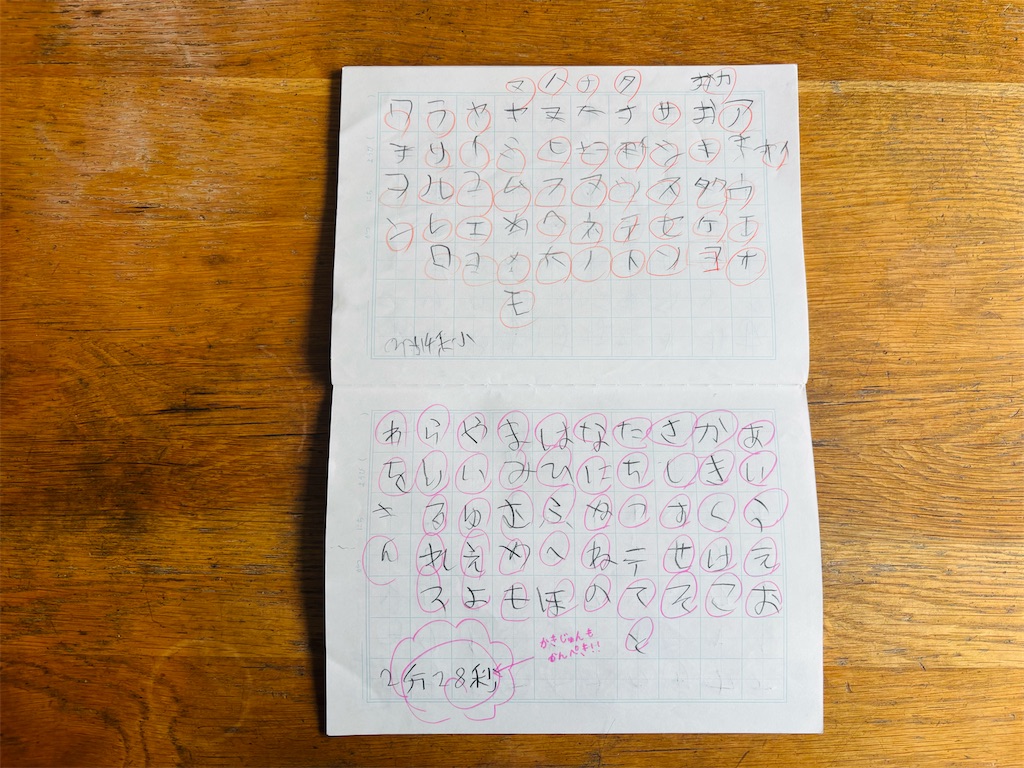 アイウエオ
カおキクケヨ
サシスセソ
タチツテト
ナヒヌネノ
ハヌヒフヘホ
マヤミムメメモ
ヤイユエヨ
ラリルレロ
ワヲン
2分14秒
あいうえお
かきくけこ
さしすせそ
たちつテてと
なにぬねの
はひふへほ
まみむめも
やいゆえよ
らりるれろ
わをさん
かきじゅんも
かんぺき!!
2分28秒